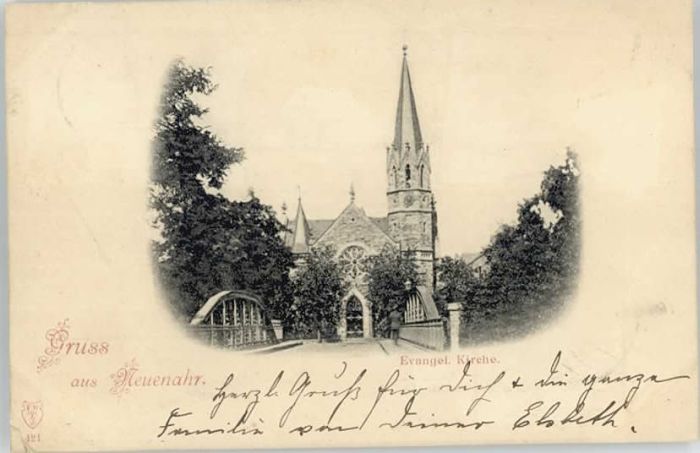 Gruss
aus Neuenahr.
Evangel. Kirche.
Herzl. Gruß für Dich + die ganze
Familie von Deiner Elsbeth.
121